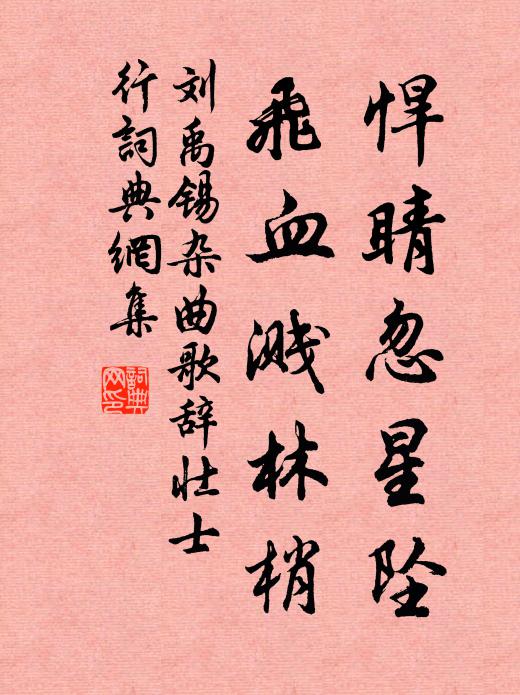 悍睛忽星坠
飞血溅林梢
刘禹锡杂曲歌辞壮士
行詞典網集
詞典網印